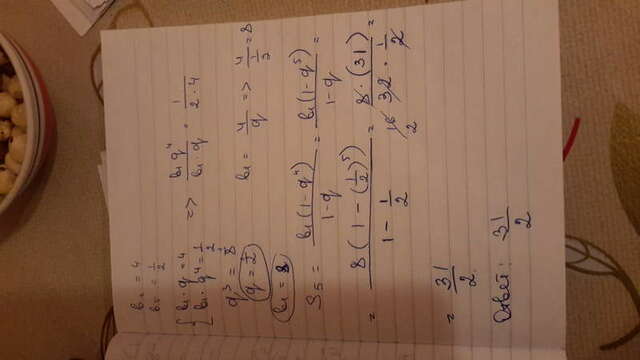 b₂ = 4
b₅ = 1/2
{ b₁·q = 4
{ b₁·q⁴ = 1/2 => b₁q⁴/b₁·q = 1/2·4
q³ = 1/8
q = 1/2 b₁ = 4/q =>
b₁ = 8
S₅ = b₁(1-q⁴)/1-q = b₁(1-q⁵)/1-q =
= 8(1-(1/2)⁵)/1-1/2 = 8·(31)/32·1/2 =
= 31/2
Ответ: 31/2